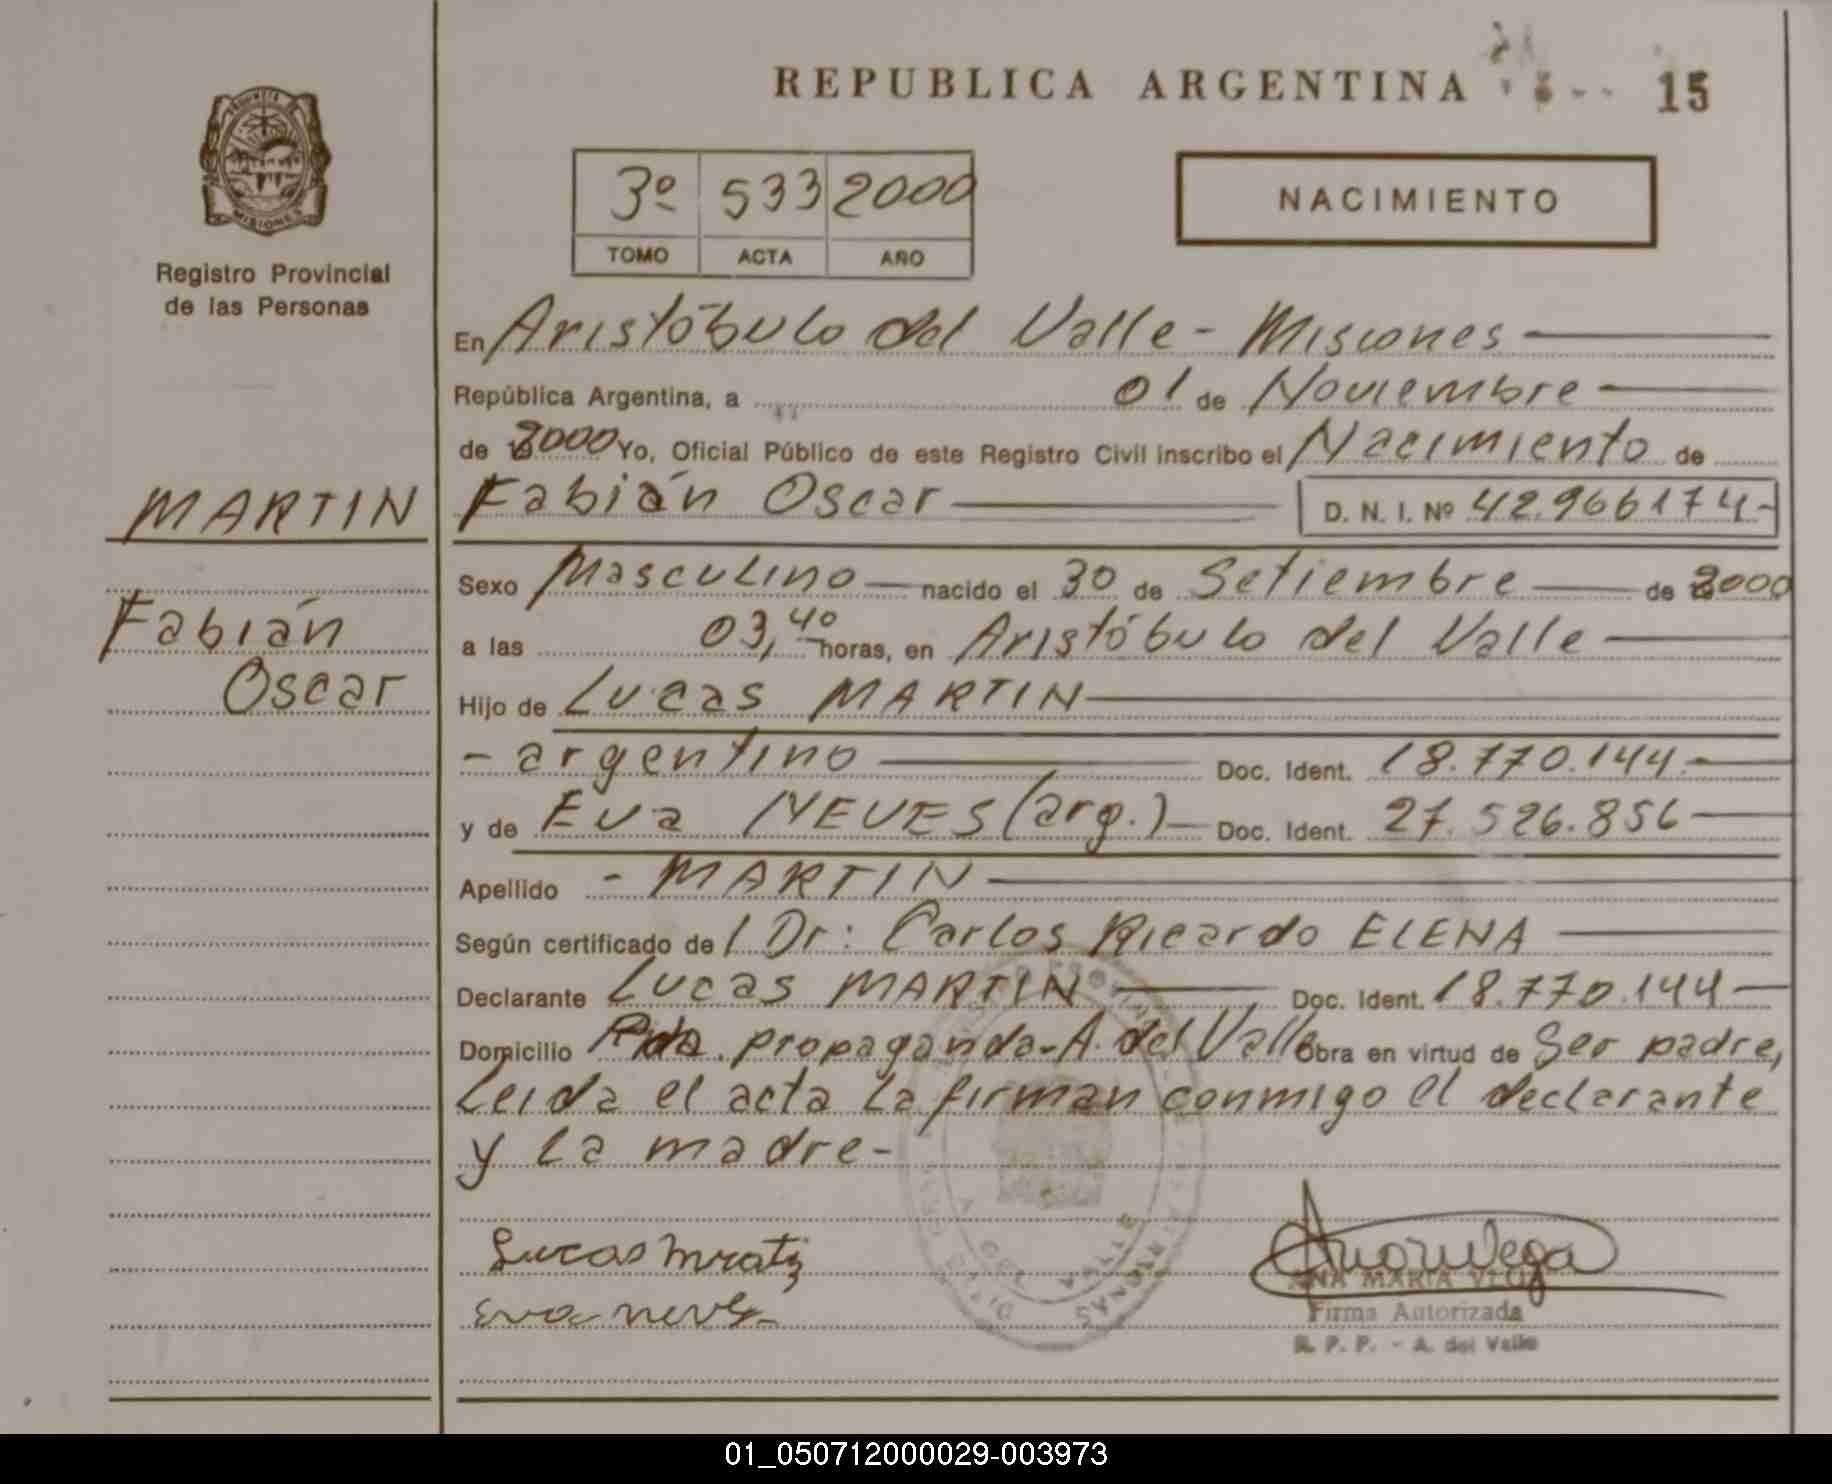 REPUBLICA ARGENTINA
15
PROVINCIA DE
MISIONES
Registro Provincial
de las Personas
3º 533 2000
TOMO ACTA AÑO
NACIMIENTO
En Aristóbulo del Valle - Misiones
República Argentina, a 01 de Noviembre
de 2000 Yo, Oficial Público de este Registro Civil inscribo el Nacimiento de
MARTIN
Fabián Oscar D. N. I. Nº 42.966174-
Sexo Masculino nacido el 30 de Setiembre de 2000
Fabián
Oscar
a las 03,40 horas, en Aristóbulo del Valle
Hijo de Lucas MARTIN
- argentino Doc. Ident. 18.770.144.
y de Eva NEVES (arg.) Doc. Ident. 27.526.856
Apellido - MARTIN
Según certificado de / Dr: Carlos Ricardo ELENA
Declarante Lucas MARTIN Doc. Ident. 18.770.144
Domicilio Pda. propaganda-A. del Valle Obra en virtud de Ser padre,
Leida el acta la firman conmigo el declarante
y la madre-
Lucas
Eva neves
ANA MARIA VEGA
Firma Autorizada
R. P. P. - A. del Valle
01_050712000029-003973